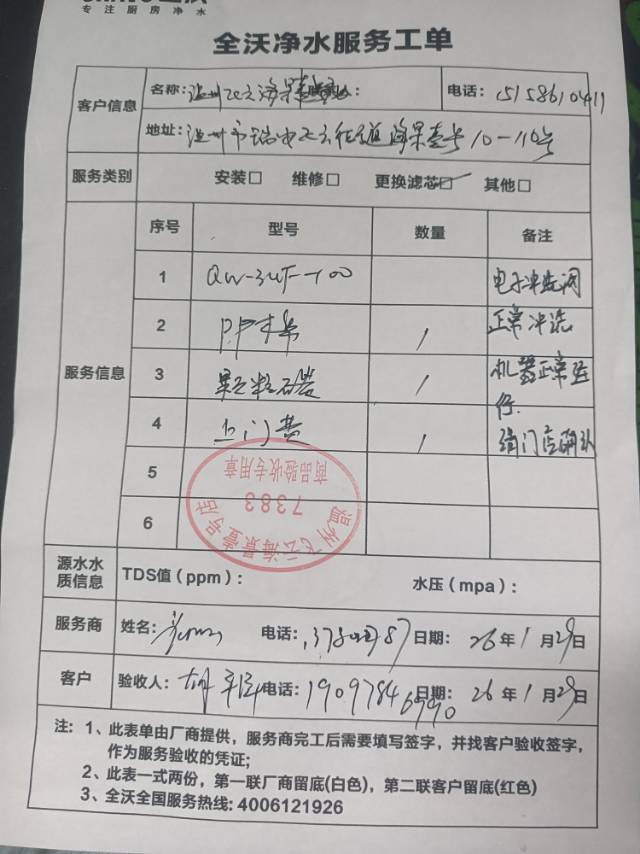 专注厨房净水
全沃净水服务工单
客户信息
名称: 温州飞云海景壹号店
电话: 15158610411
地址: 温州市瑞安飞云街道海景壹号10-110号
服务类别 安装□ 维修□ 更换滤芯☑ 其他□
服务信息
序号 型号 数量 备注
1 QW-3UF-100 电子冲洗阀
2 PP棉 1 正常冲洗
3 颗粒炭 1 机器正常运行.
4 上门费 1 请门店确认
5
6
商品验收专用章
7383
温州飞云海景壹号店
源水水质信息 TDS值(ppm): 水压(mpa):
服务商 姓名: 电话: 日期: 26年1月29日
客户 验收人: 电话: 19097846990 日期: 26年1月29日
注: 1、此表单由厂商提供,服务商完工后需要填写签字,并找客户验收签字,
作为服务验收的凭证;
2、此表一式两份,第一联厂商留底(白色),第二联客户留底(红色)
3、全沃全国服务热线: 4006121926